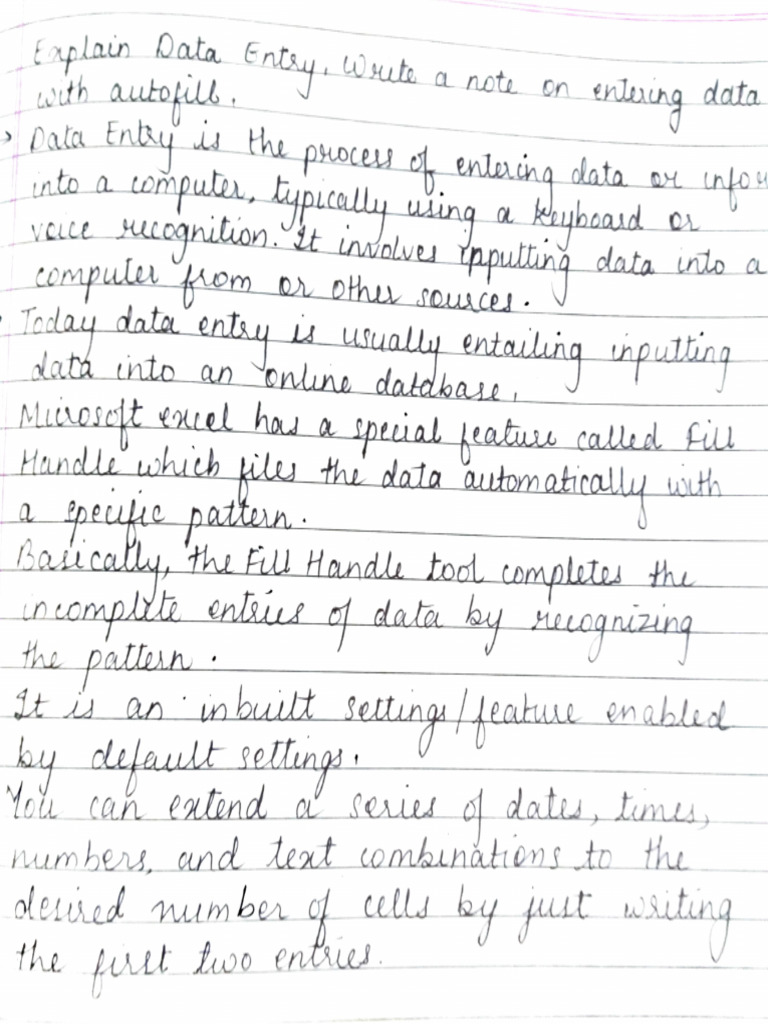 Explain Data Entry. Write a note on entering data
with autofill.
Data Entry is the process of entering data or infor
into a computer, typically using a keyboard or
voice recognition. It involves inputting data into a
computer from or other sources.
Today data entry is usually entailing inputting
data into an online database.
Microsoft excel has a special feature called Fill
Handle which files the data automatically with
a specific pattern.
Basically, the Fill Handle tool completes the
incomplete entries of data by recognizing
the pattern.
It is an inbuilt settings/feature enabled
by default settings.
You can extend a series of dates, times,
numbers, and text combinations to the
desired number of cells by just writing
the first two entries.